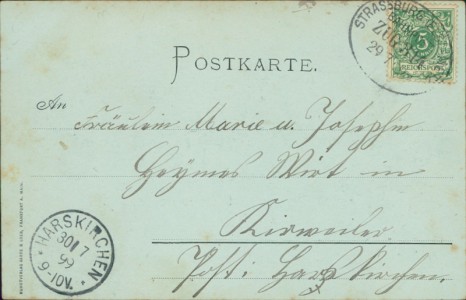 STRASSBURG
ZUG
29
5
REICHSPOST
POSTKARTE.
An
Fräulein Marie u. Josephin
Heymes Wirt in
Kirweiler
Post: Harskirchen.
HARSKIRCHEN
30 7
99
9-10V.